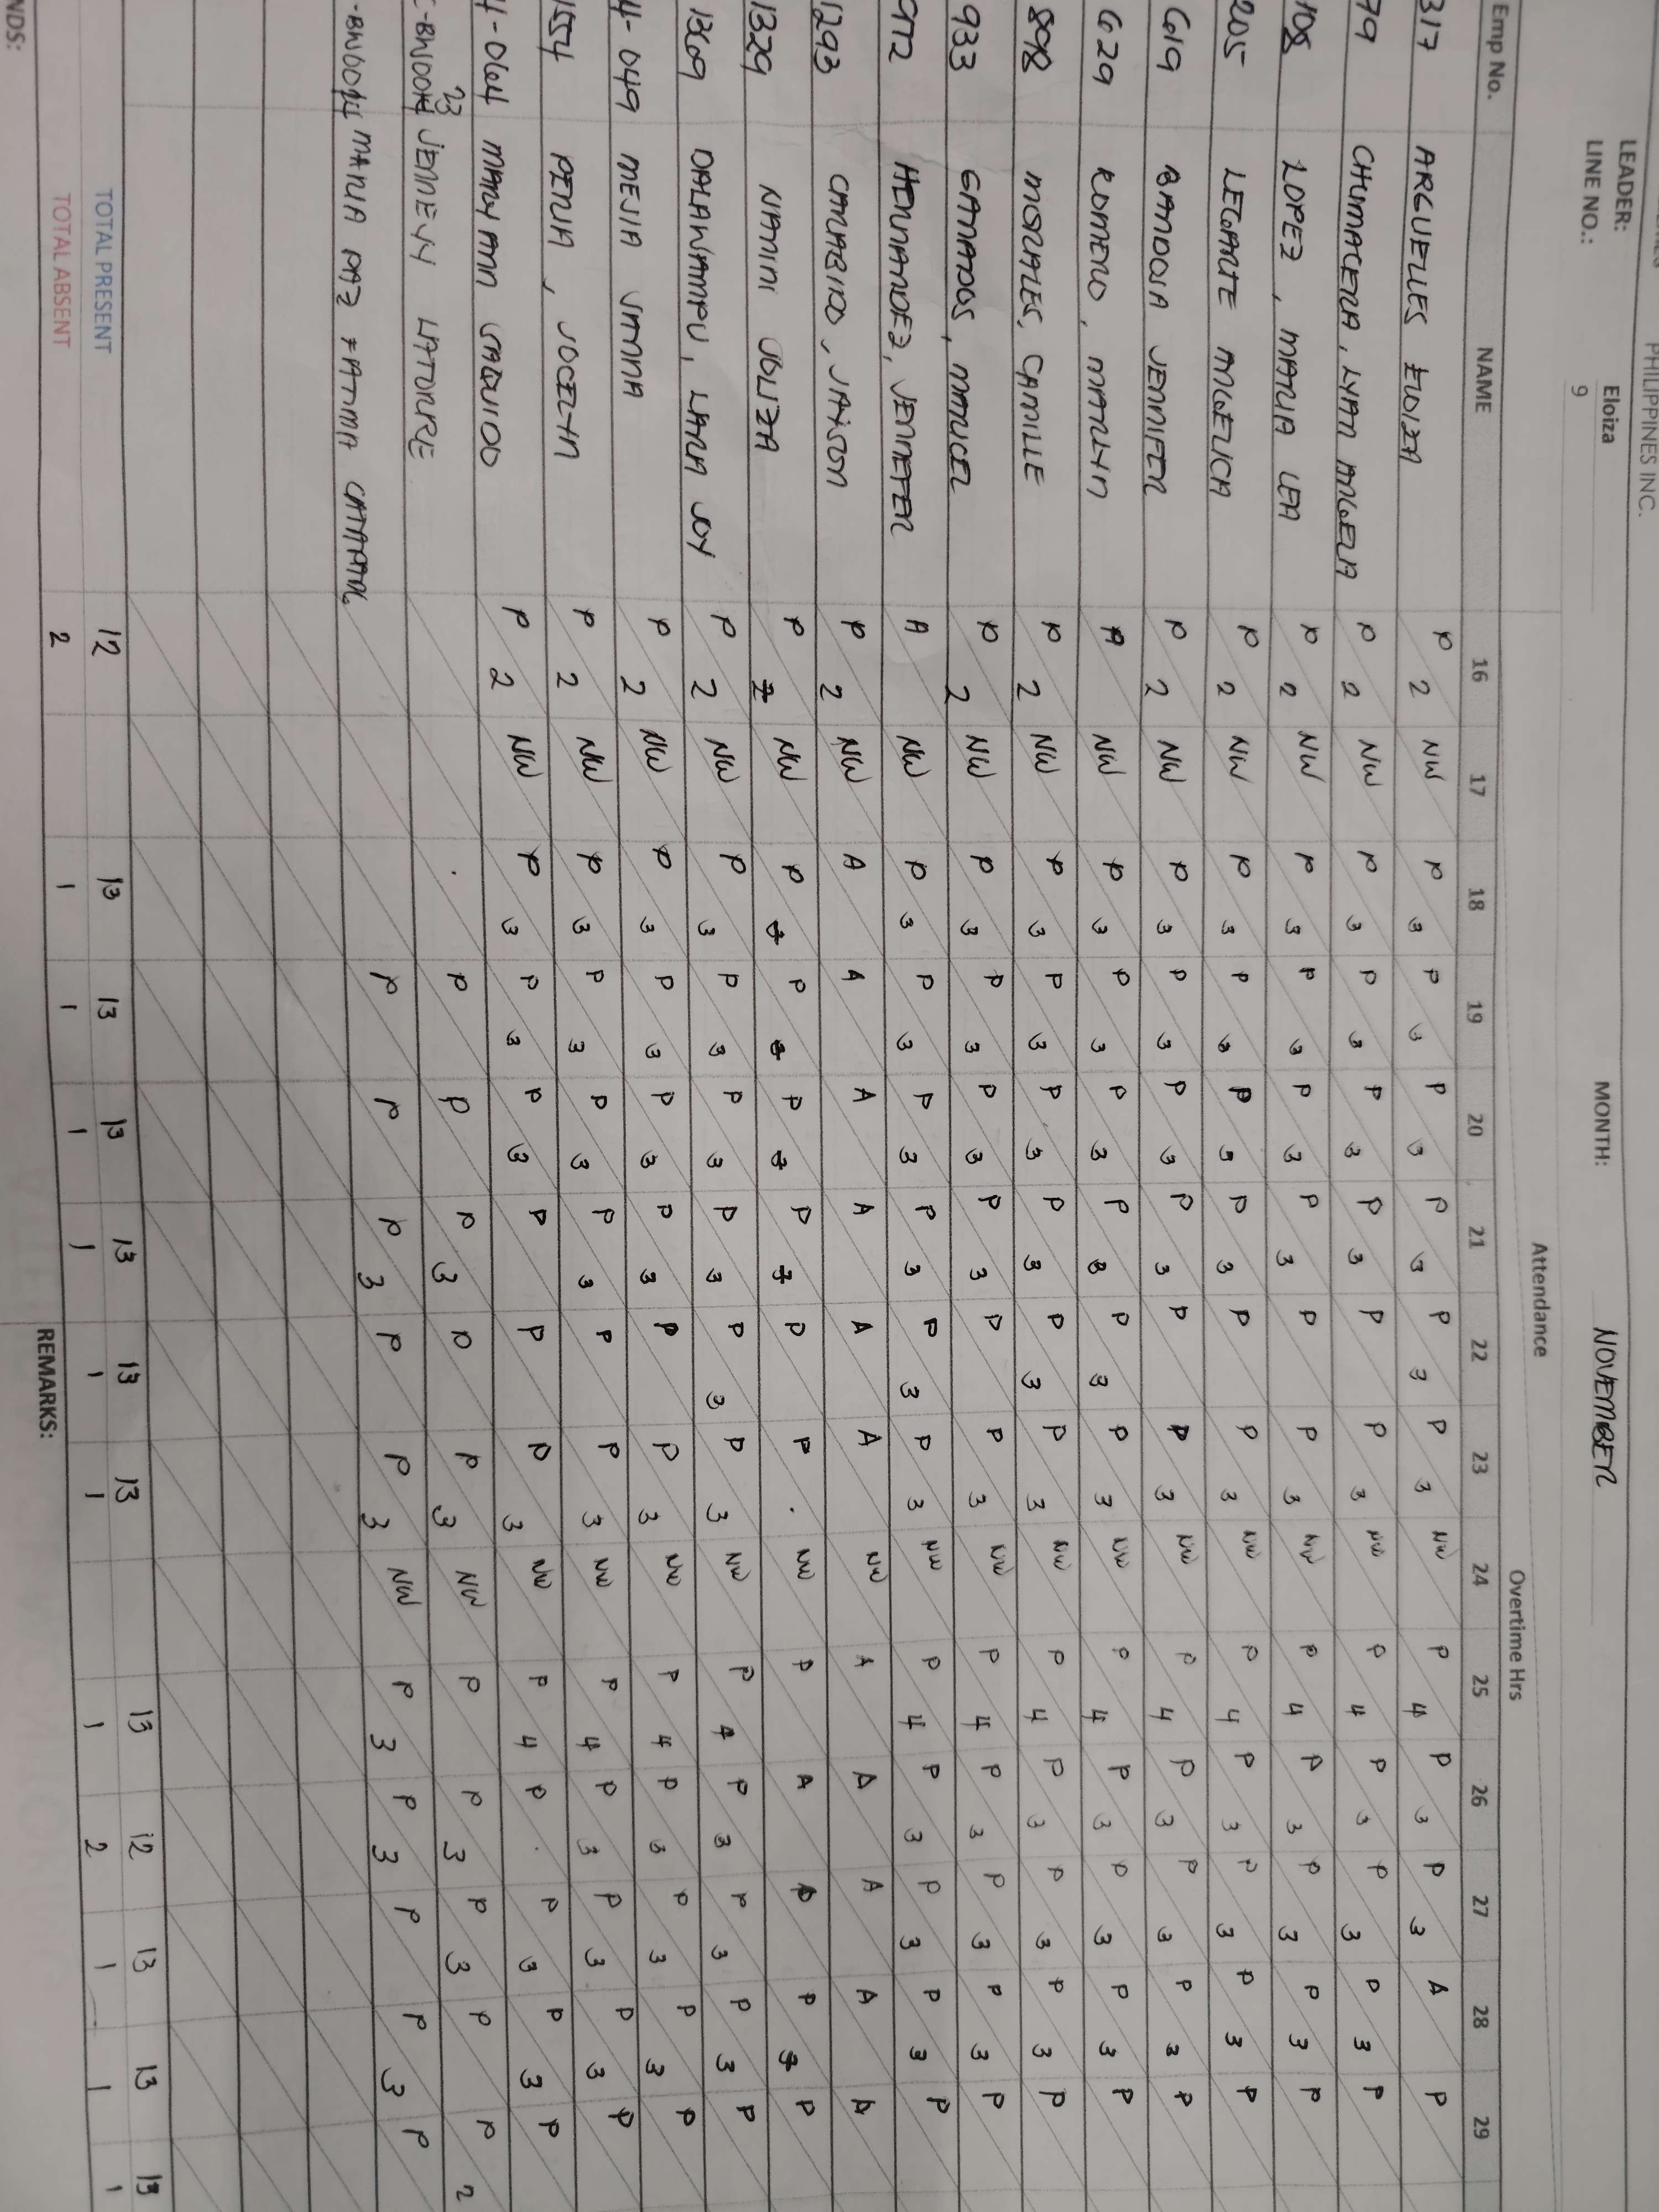 PHILIPPINES INC.
LEADER: Eloiza MONTH: NOVEMBER
LINE NO.: 9
Attendance Overtime Hrs
Emp No. NAME 16 17 18 19 20 21 22 23 24 25 26 27 28 29
317 ARGUELLES ELOIZA P 2 NW P 3 P 3 P 3 P 3 P 3 P 3 NW P 4 P 3 P 3 A P
79 CHUMACERA, LYAN ANGELA P 2 NW P 3 P 3 P 3 P 3 P P 3 NW P 4 P 3 P 3 P 3 P
108 LOPEZ, MARIA LEA P 2 NW P 3 P 3 P 3 P 3 P P 3 NW P 4 P 3 P 3 P 3 P
205 LEGARTE ANGELICA P 2 NW P 3 P 3 P 3 P 3 P P 3 NW P 4 P 3 P 3 P 3 P
619 BANDOSA JENNIFER P 2 NW P 3 P 3 P 3 P 3 P P 3 NW P 4 P 3 P 3 P 3 P
629 ROMERO, MARLYN A NW P 3 P 3 P 3 P 3 P 3 P 3 NW P 4 P 3 P 3 P 3 P
898 MORALES, CAMILLE P 2 NW P 3 P 3 P 3 P 3 P 3 P 3 NW P 4 P 3 P 3 P 3 P
933 GAMADOS, MARICEL P 2 NW P 3 P 3 P 3 P 3 P P 3 NW P 4 P 3 P 3 P 3 P
972 HERNANDEZ, JENNEFER A NW P 3 P 3 P 3 P 3 P 3 P 3 NW P 4 P 3 P 3 P 3 P
1293 CARABIDO, JAYSON P 2 NW A A A A A A NW A A A A A
1329 NAMINI JOLIZA P NW P P P P P P NW P A P P P
1369 DALAWAMPU, LARA JOY P 2 NW P 3 P 3 P 3 P 3 P 3 P 3 NW P 4 P 3 P 3 P 3 P
4-049 MEJIA JAMNA P 2 NW P 3 P 3 P 3 P 3 P P 3 NW P 4 P 3 P 3 P 3 P
1554 PERIA, JOCELYN P 2 NW P 3 P 3 P 3 P 3 P P 3 NW P 4 P 3 P 3 P 3 P
4-064 MARY ANN GAQUIOD P 2 NW P 3 P 3 P 3 P P P 3 NW P 4 P P 3 P 3 P
23 JENNELYN LATORRE P P P 3 P P 3 NW P P 3 P 3 P P 2
MARIA PAZ FATIMA P P P 3 P P 3 NW P 3 P 3 P P 3 P
TOTAL PRESENT 12 13 13 13 13 13 13 13 12 13 13 13
TOTAL ABSENT 2 1 1 1 1 1 1 1 2 1 1 1
REMARKS: